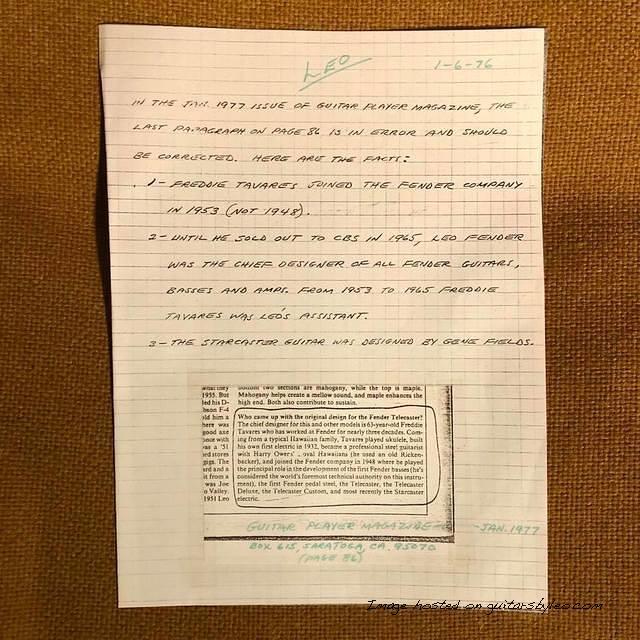 LEO
1-6-76
IN THE JAN. 1977 ISSUE OF GUITAR PLAYER MAGAZINE, THE
LAST PARAGRAPH ON PAGE 86 IS IN ERROR AND SHOULD
BE CORRECTED. HERE ARE THE FACTS:
1- FREDDIE TAVARES JOINED THE FENDER COMPANY
IN 1953 (NOT 1948).
2- UNTIL HE SOLD OUT TO CBS IN 1965, LEO FENDER
WAS THE CHIEF DESIGNER OF ALL FENDER GUITARS,
BASSES AND AMPS. FROM 1953 TO 1965 FREDDIE
TAVARES WAS LEO'S ASSISTANT.
3- THE STARCASTER GUITAR WAS DESIGNED BY GENE FIELDS.
what they
1955. But
led his D-
bson F-4
old him a
here was
good axe
once with
as a '51
ed stores
gigs. The
rd and a
it from a
was Joe
o Valley.
1951 Leo
bottom two sections are mahogany, while the top is maple.
Mahogany helps create a mellow sound, and maple enhances the
high end. Both also contribute to sustain.
Who came up with the original design for the Fender Telecaster?
The chief designer for this and other models is 63-year-old Freddie
Tavares who has worked at Fender for nearly three decades. Com-
ing from a typical Hawaiian family, Tavares played ukulele, built
his own first electric in 1932, became a professional steel guitarist
with Harry Owens' oyal Hawaiians (he used an old Ricken-
backer), and joined the Fender company in 1948 where he played
the principal role in the development of the first Fender basses (he's
considered the world's foremost technical authority on this instru-
ment), the first Fender pedal steel, the Telecaster, the Telecaster
Deluxe, the Telecaster Custom, and most recently the Starcaster
electric.
GUITAR PLAYER MAGAZINE- -JAN. 1977
BOX 615, SARATOGA, CA. 95070
(PAGE 86)
Image hosted on guitarsbyleo.com